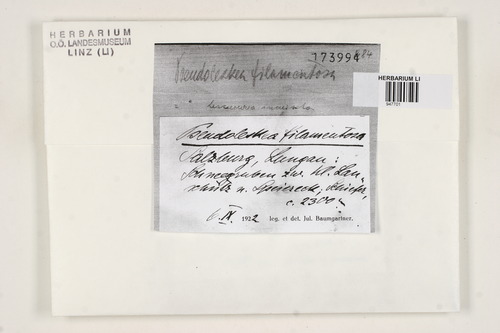 HERBARIUM
O.Ö. LANDESMUSEUM
LINZ (LI)
173994
Pseudoleskea filamentosa
HERBARIUM LI
Pseudoleskea filamentosa
Salzburg, Lungau:
Schneegruben zw. Kl. Lan-
schütz u. Speiereck, Schiefer,
c. 2300
6. IX. 1922 leg. et det. Jul. Baumgartner.